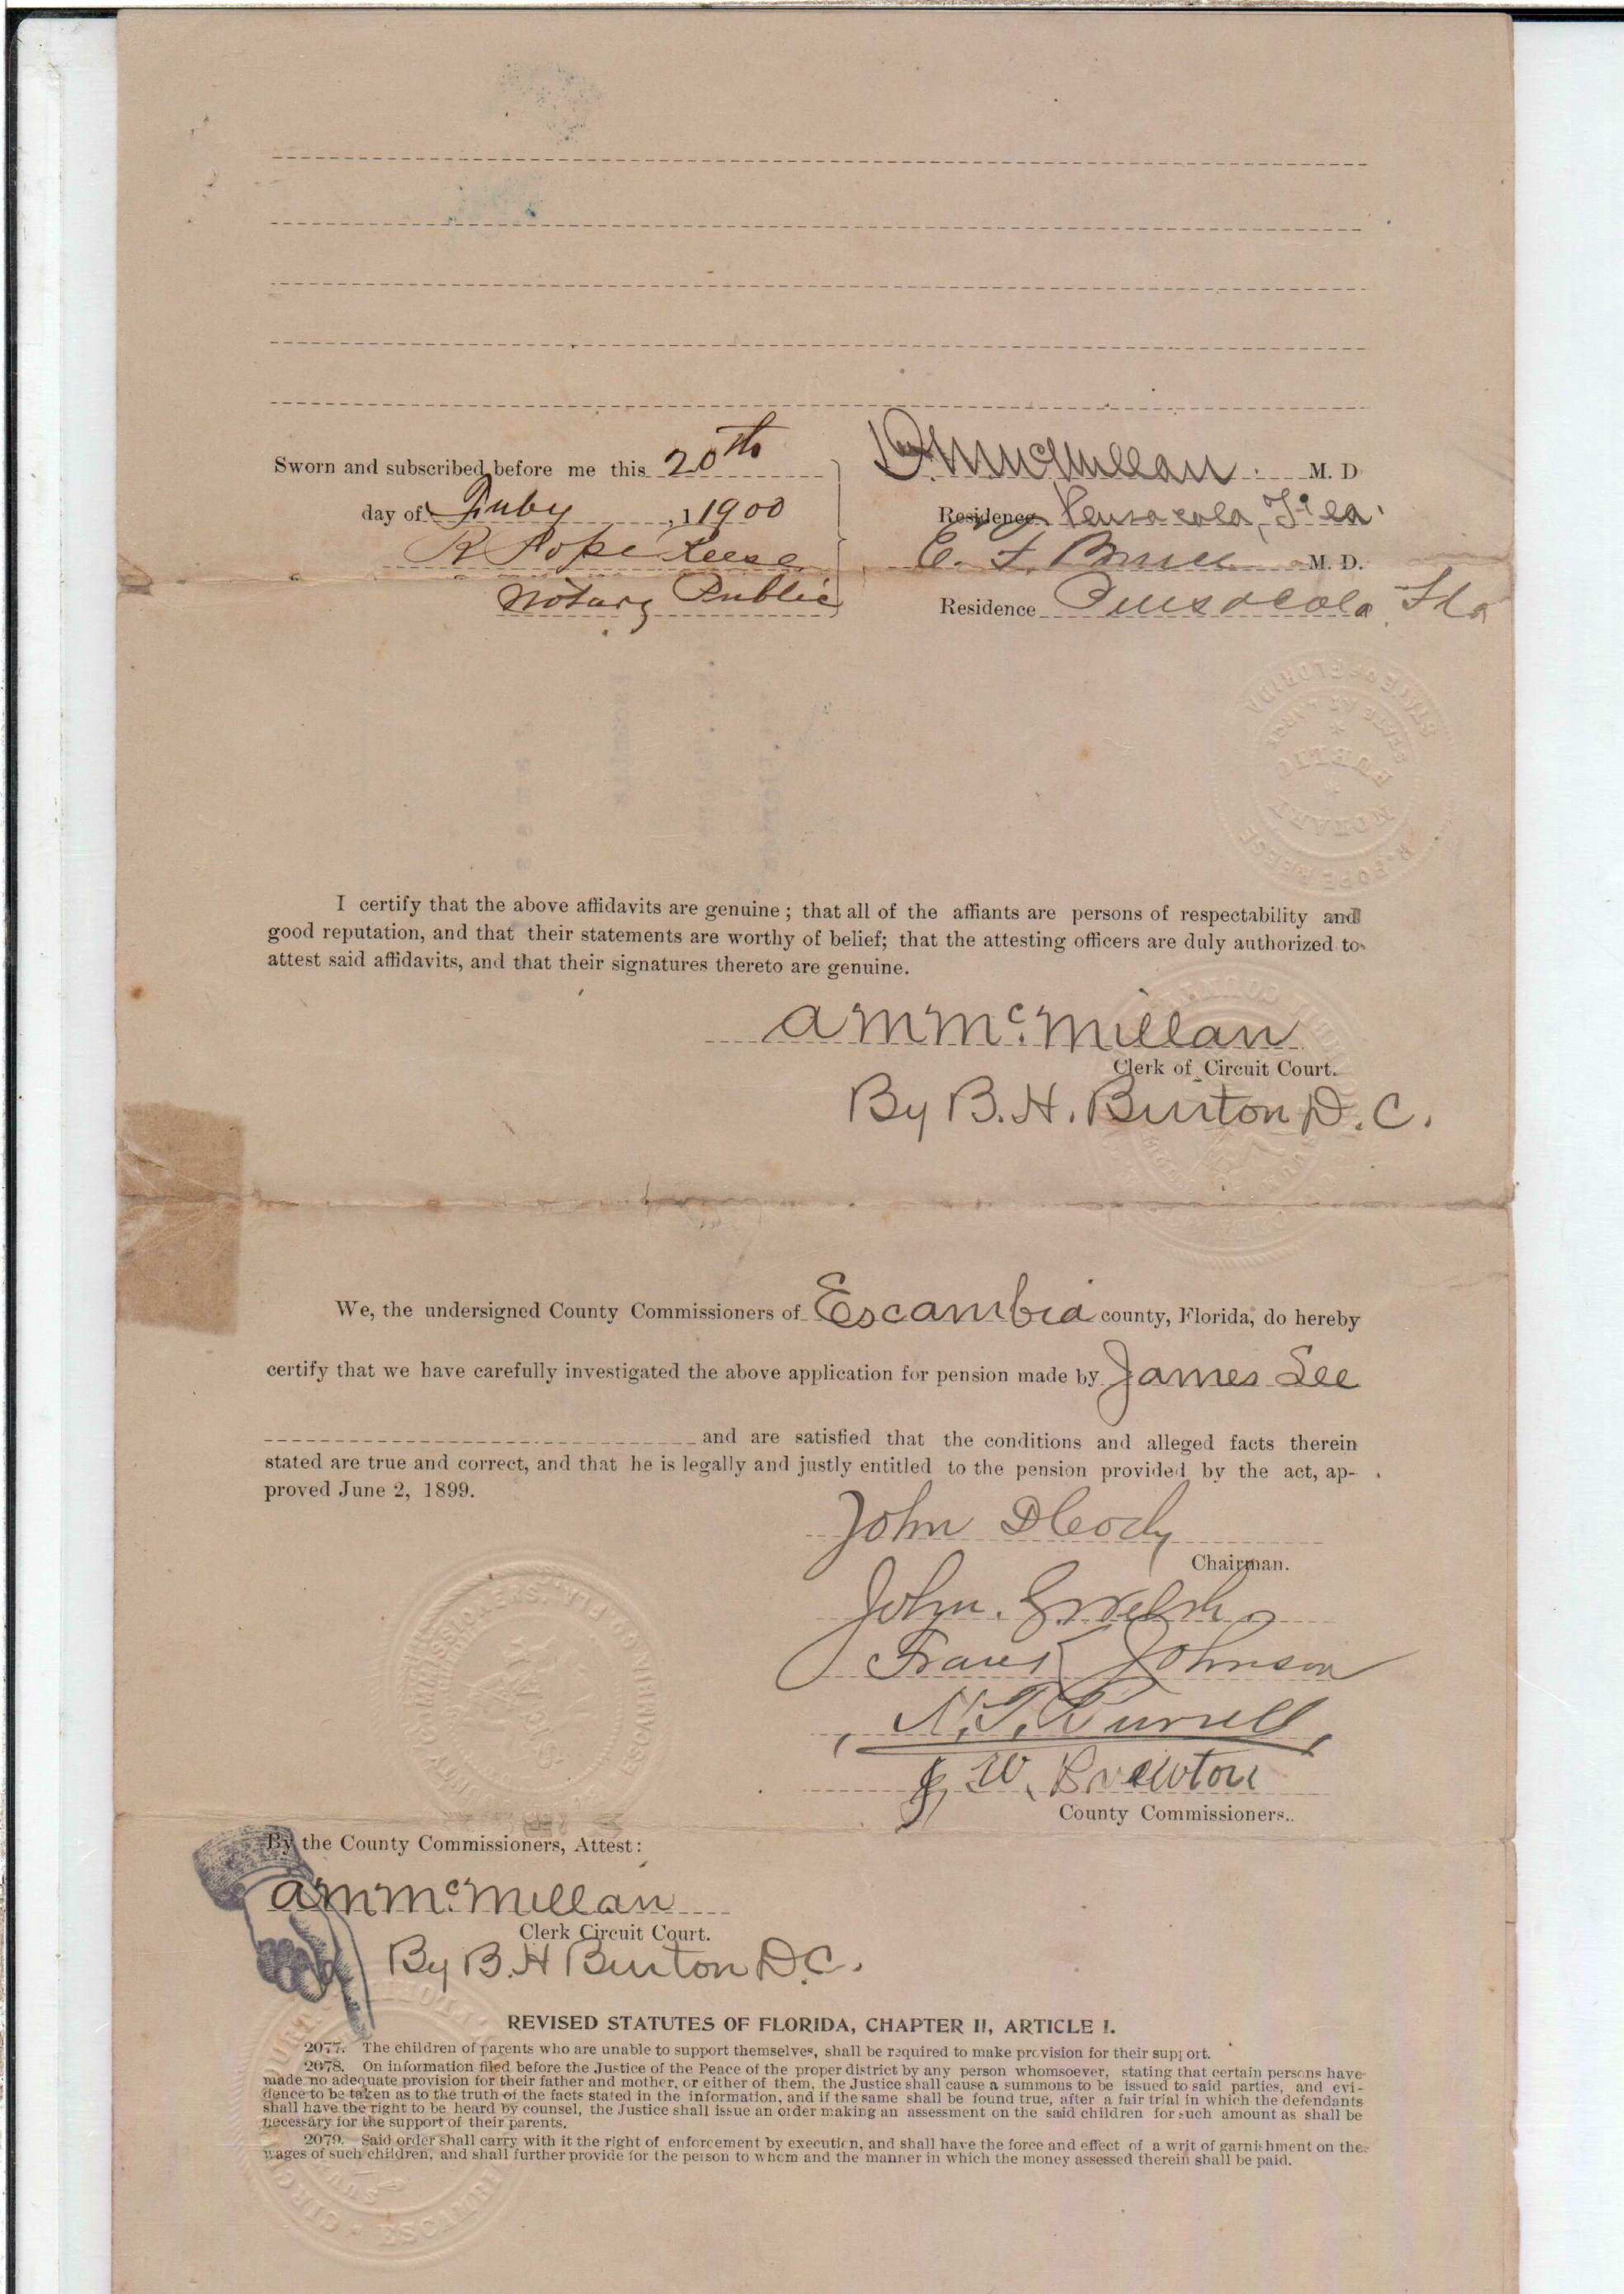 Sworn and subscribed before me this 20th
day of July, 1 1900
R Pope Reese
Notary Public
McMillan M. D
Residence Pensacola, Fla.
E. F. M. D.
Residence Pensacola Fla
STATE OF FLORIDA
STATE AT LARGE
NOTARY PUBLIC
R. POPE REESE
I certify that the above affidavits are genuine; that all of the affiants are persons of respectability and
good reputation, and that their statements are worthy of belief; that the attesting officers are duly authorized to
attest said affidavits, and that their signatures thereto are genuine.
A M McMillan
Clerk of Circuit Court.
By B. H. Burton D. C.
We, the undersigned County Commissioners of Escambia county, Florida, do hereby
certify that we have carefully investigated the above application for pension made by James Lee
and are satisfied that the conditions and alleged facts therein
stated are true and correct, and that he is legally and justly entitled to the pension provided by the act, ap-
proved June 2, 1899.
John D Cody
Chairman.
John. G Welsh
Frank Johnson
N. T. Murrell
J. W. Brewton
County Commissioners..
By the County Commissioners, Attest:
A M McMillan
Clerk Circuit Court.
By B. H Burton D.C.
REVISED STATUTES OF FLORIDA, CHAPTER II, ARTICLE I.
2077. The children of parents who are unable to support themselves, shall be required to make provision for their support.
2078. On information filed before the Justice of the Peace of the proper district by any person whomsoever, stating that certain persons have
made no adequate provision for their father and mother, or either of them, the Justice shall cause a summons to be issued to said parties, and evi-
dence to be taken as to the truth of the facts stated in the information, and if the same shall be found true, after a fair trial in which the defendants
shall have the right to be heard by counsel, the Justice shall issue an order making an assessment on the said children for such amount as shall be
necessary for the support of their parents.
2079. Said order shall carry with it the right of enforcement by execution, and shall have the force and effect of a writ of garnishment on the
wages of such children, and shall further provide for the person to whom and the manner in which the money assessed therein shall be paid.